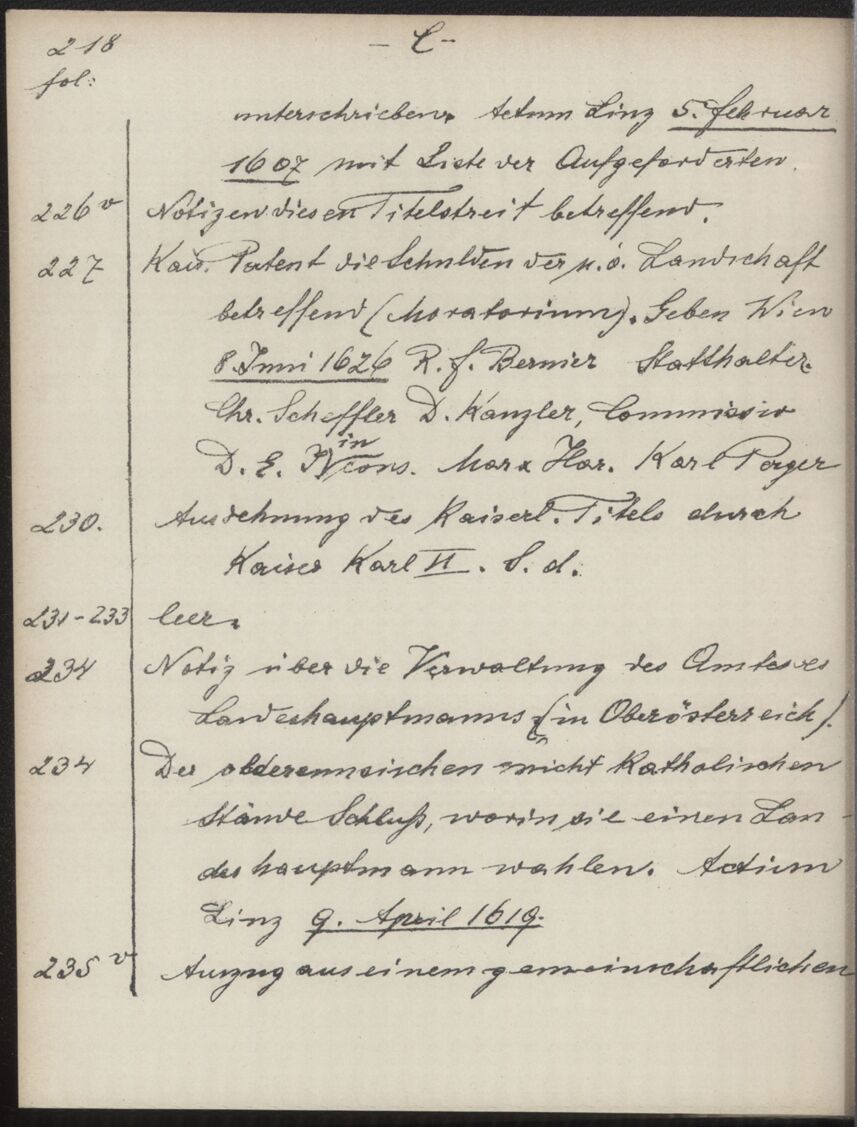 218 – C –
fol:
unterschrieben. Actum Linz 5. Februar
1607 mit Liste der Aufgeforderten.
226v Notizen diesen Titelstreit betreffend.
227 Kais. Patent die Schulden der n.ö. Landschaft
betreffend (Moratorium). Geben Wien
8. Juni 1626 R. f. Bernier Statthalter.
Chr. Scheffler D. Kanzler, Commissio
D. E. in cons. Marx Hor. Karl Perger
230. Ausdehnung des Kaiserl. Titels durch
Kaiser Karl II. S. d.
231-233 leer.
234 Notiz über die Verwaltung des Amtes des
Landeshauptmanns (in Oberösterreich).
234 Der obderennsischen nicht Katholischen
Stände Schluß, worin sie einen Lan-
deshauptmann wahlen. Actum
Linz 9. April 1619.
235v Auszug aus einem gemeinschaftlichen